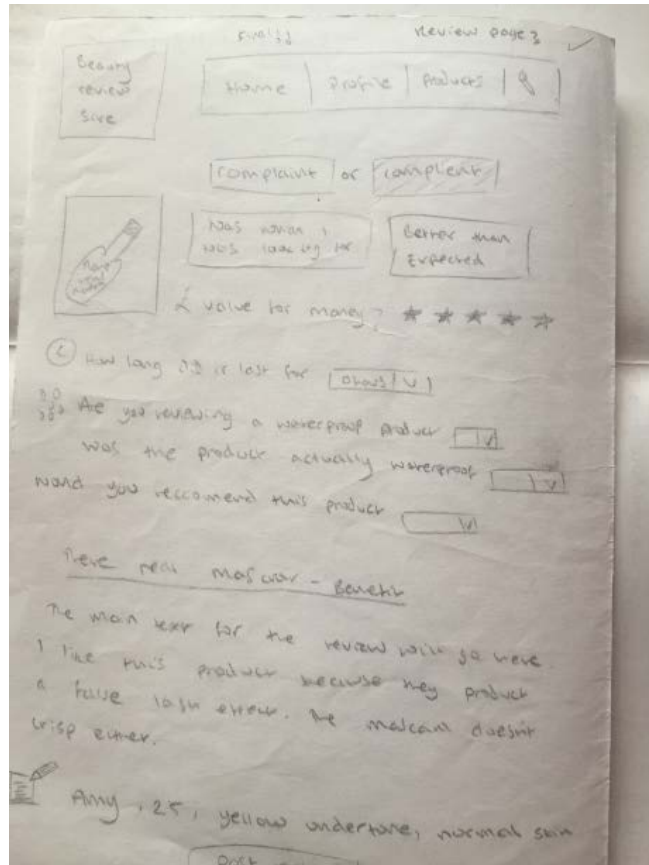 Final!!
Review page 3
Beauty
review
Home | Profile | Products
complaint or complient
was
was looking for
Better than
Expected
£ value for money?
How long did it last for
Are you reviewing a waterproof product
was the product actually waterproof
would you reccomend this product
real - Benefit
The main text for the review will go here
I like this product because they product
a false lash effect. The doesn't
crisp either.
Amy, 25, yellow undertone, normal skin
Post